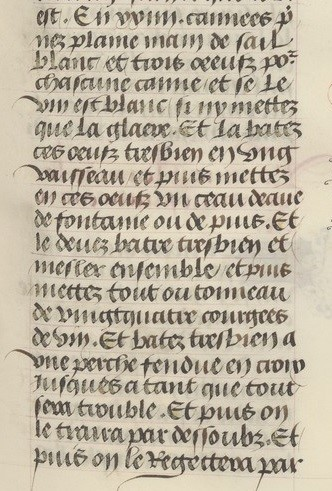 est. En xxiiii. cannees p̱
nez plaine main de sail
blanc et trois oeeufz por
chascune canne / et se le
vin est blanc / si ny mettez
que la glaere. Et la batez
ces oeufz tresbien en vng
vaisseau / et puis mettez
en ces oeufz vn ceau deaue
de fontaine ou de puis. Et
le deuez batre tresbien et
mesler ensemble / et puis
mettez tout ou tonneau
de vingtquatre courgees
de vin. Et batez tresbien a
vne perche fendue en croix
Jusques a tant que tout
sera trouble. Et puis on
le traira par dessoubz. Et
puis on le Regettera par